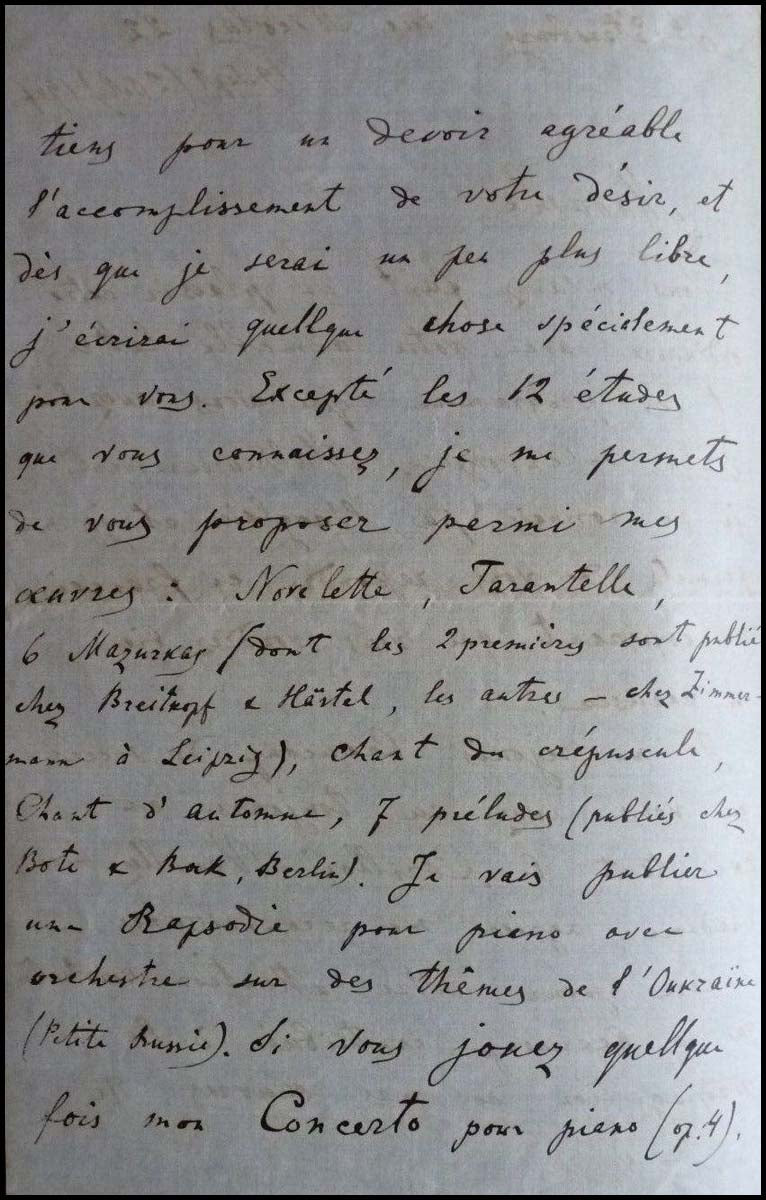 tiens pour un devoir agréable
l'accomplissement de votre désir, et
dès que je serai un peu plus libre,
j'écrirai quellque chose spécialement
pour vous. Excepté les 12 études
que vous connaissez, je me permets
de vous proposer permi mes
œuvres : Novelette, Tarantelle,
6 Mazurkas (dont les 2 premières sont publié
chez Breitkopf & Härtel, les autres – chez Zimmer-
mann à Leipzig), chant du crépuscule,
Chant d'automne, 7 préludes (publiés chez
Bote & Bock, Berlin). Je vais publier
une Rapsodie pour piano avec
orchestre sur des thêmes de l'Oukraïne
(Petite Russie). Si vous jouez quellque
fois mon Concerto pour piano (op. 4).